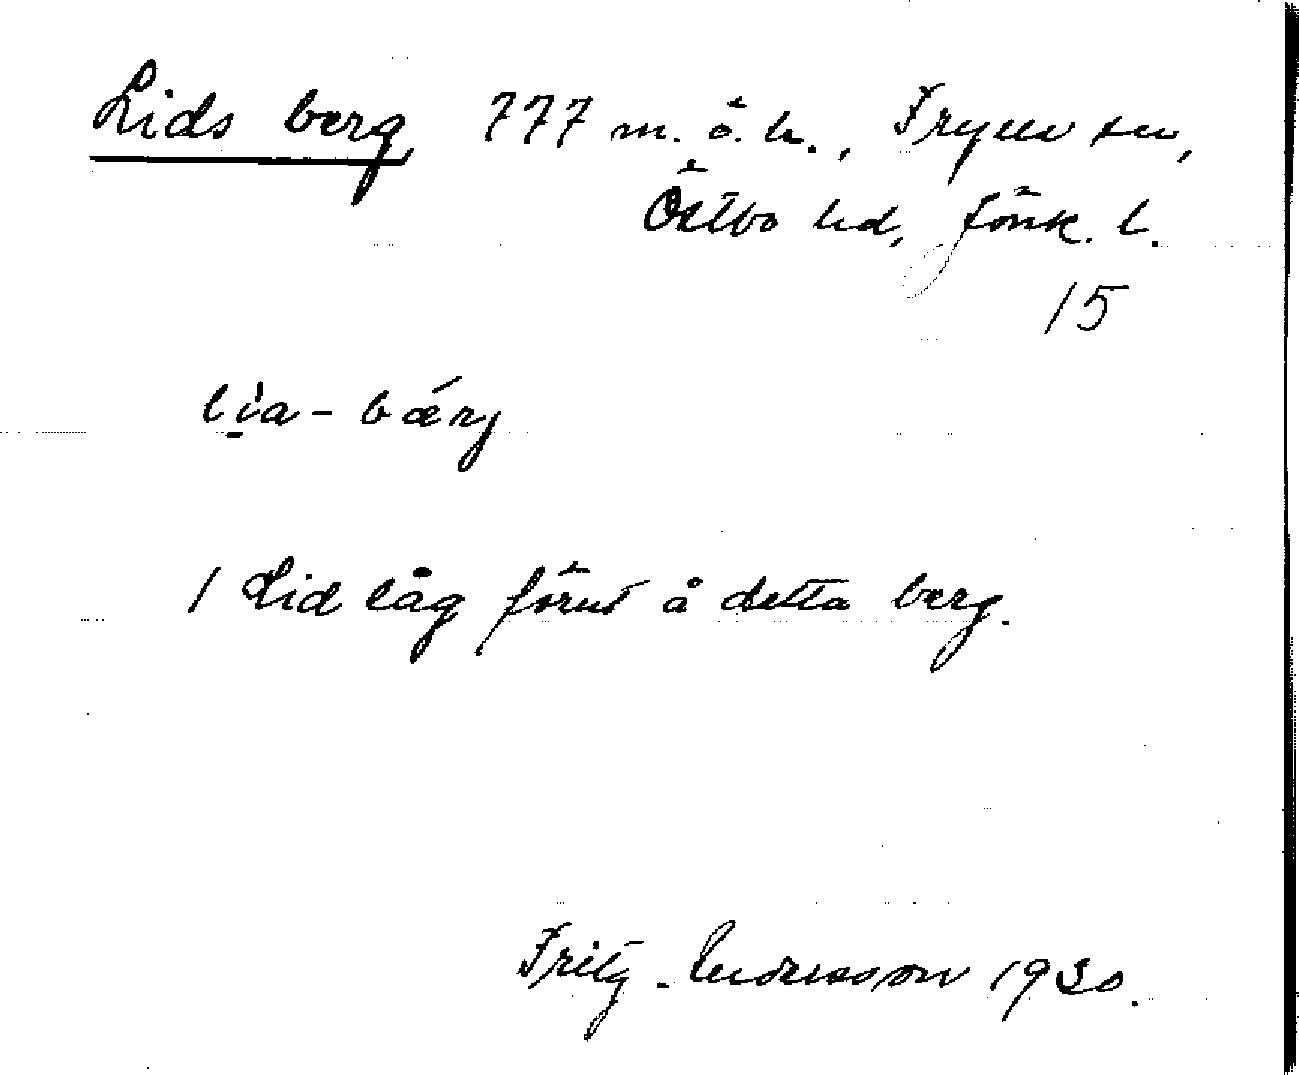 Lids berg, 777 m. ö. h., Tryserum sn,
Östbo hd, Jönk. l.
15
li̱a-bǽrj
1 Lid låg förut å detta berg.
Fritz Andersson 1930.